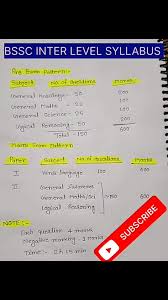 BSSC INTER LEVEL SYLLABUS
Pre Exam Pattern:-
Subject No. of Questions Marks
General Knowledge- 50 200
General Maths- 25 100
General Science- 25 100
Logical Reasoning- 50 200
Total - 150 600
Mains Exam Pattern
Paper Subject No. of Questions Marks
I Hindi language 100
II General Science
General Maths/Sci 150 600
Logical Reasoning
NOTE:-
Each question 4 marks
Negative marking - 1 marks
Time - 2h 15 min
SUBSCRIBE